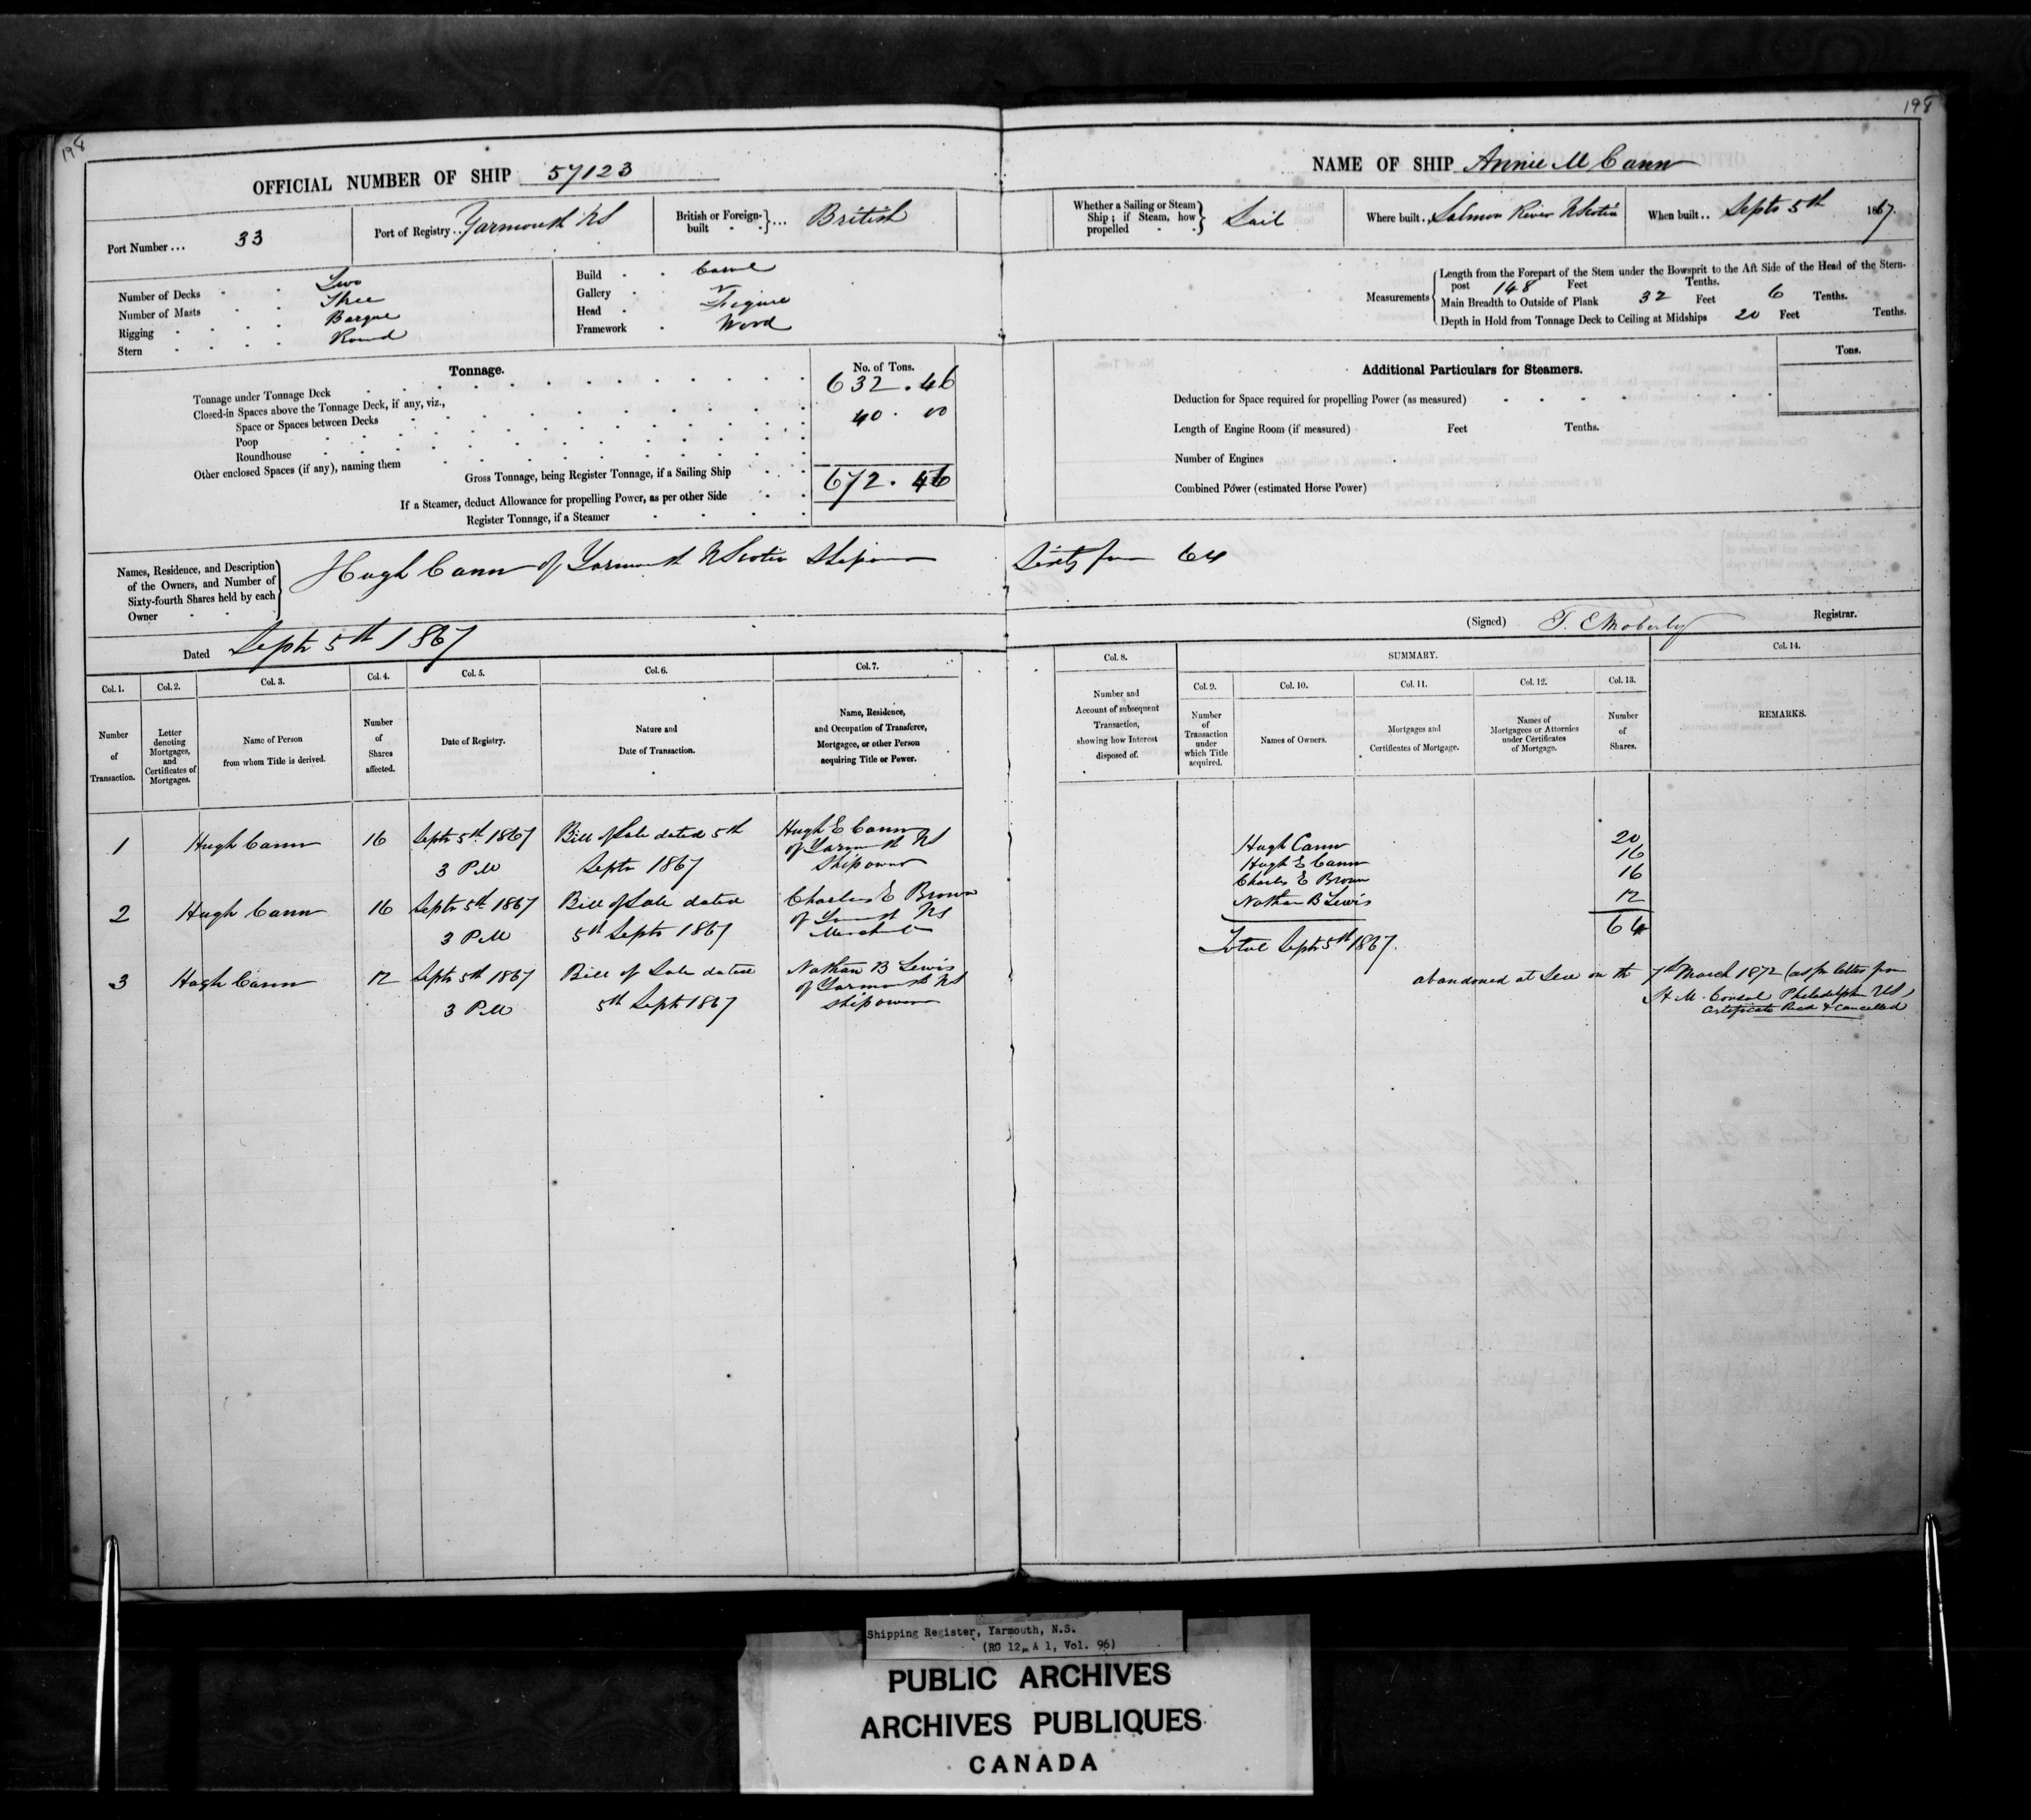 198
198
OFFICIAL NUMBER OF SHIP 57123
Port Number ... 33
Port of Registry .. Yarmouth NS
British or Foreign-built ... British
Number of Decks Two
Number of Masts Three
Rigging Barque
Stern Round
Build Carvel
Gallery
Head Figure
Framework Wood
Tonnage.
No. of Tons.
Tonnage under Tonnage Deck 632.46
Closed-in Spaces above the Tonnage Deck, if any, viz.,
Space or Spaces between Decks 40.00
Poop
Roundhouse
Other enclosed Spaces (if any), naming them
Gross Tonnage, being Register Tonnage, if a Sailing Ship 672.46
If a Steamer, deduct Allowance for propelling Power, as per other Side
Register Tonnage, if a Steamer
NAME OF SHIP Annie M Cann
Whether a Sailing or Steam Ship; if Steam, how propelled Sail
Where built .. Salmon River N Scotia
When built .. Septr 5th 1867.
Measurements
Length from the Forepart of the Stem under the Bowsprit to the Aft Side of the Head of the Stern-
post 148 Feet Tenths.
Main Breadth to Outside of Plank 32 Feet 6 Tenths.
Depth in Hold from Tonnage Deck to Ceiling at Midships 20 Feet Tenths.
Additional Particulars for Steamers.
Tons.
Deduction for Space required for propelling Power (as measured)
Length of Engine Room (if measured) Feet Tenths.
Number of Engines
Combined Power (estimated Horse Power)
Names, Residence, and Description
of the Owners, and Number of
Sixty-fourth Shares held by each
Owner
Hugh Cann of Yarmouth N Scotia Shipowner Sixty four 64
Dated Septr 5th 1867
(Signed) T. E Moberly Registrar.
Col. 1. Number of Transaction.
Col. 2. Letter denoting Mortgages, and Certificates of Mortgages.
Col. 3. Name of Person from whom Title is derived.
Col. 4. Number of Shares affected.
Col. 5. Date of Registry.
Col. 6. Nature and Date of Transaction.
Col. 7. Name, Residence, and Occupation of Transferee, Mortgagee, or other Person acquiring Title or Power.
Col. 8. Number and Account of subsequent Transaction, showing how Interest disposed of.
SUMMARY.
Col. 9. Number of Transaction under which Title acquired.
Col. 10. Names of Owners.
Col. 11. Mortgages and Certificates of Mortgage.
Col. 12. Names of Mortgagees or Attornies under Certificates of Mortgage.
Col. 13. Number of Shares.
Col. 14. REMARKS.
1 Hugh Cann 16 Septr 5th 1867 Bill of Sale dated 5th Hugh E Cann
of Yarmouth NS
3 PM Septr 1867 Shipowner
2 Hugh Cann 16 Septr 5th 1867 Bill of Sale dated Charles E Brown
of Yarmouth NS
3 PM 5th Septr 1867 Merchant
3 Hugh Cann 12 Septr 5th 1867 Bill of Sale dated Nathan B Lewis
of Yarmouth NS
3 PM 5th Septr 1867 Shipowner
Hugh Cann 20
Hugh E Cann 16
Charles E Brown 16
Nathan B Lewis 12
64
Total Septr 5th 1867.
abandoned at Sea on the 7th March 1872 (as pr letter from
H M. Consul Philadelphia US)
Certificate Recd & Cancelled
Shipping Register, Yarmouth, N.S.
(RG 12, A 1, Vol. 96)
PUBLIC ARCHIVES
ARCHIVES PUBLIQUES
CANADA